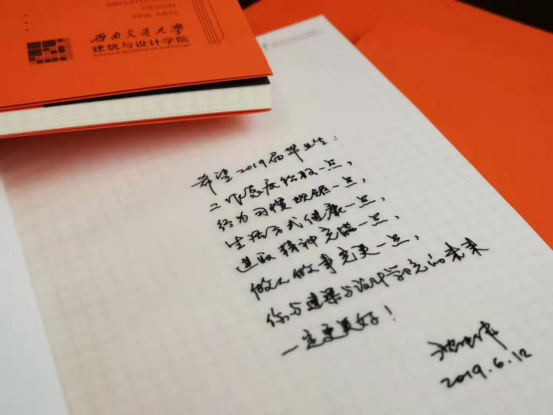 ARCHITECTURE
DESIGN
FINE ARTS
西南交通大学
建筑与设计学院
School of Architecture and Design
希望2019届毕业生：
工作态度积极一点，
行为习惯规范一点，
生活方式健康一点，
进取精神充满一点，
做人做事完美一点，
你与建筑与设计学院的未来
一定更美好！
2019.6.12